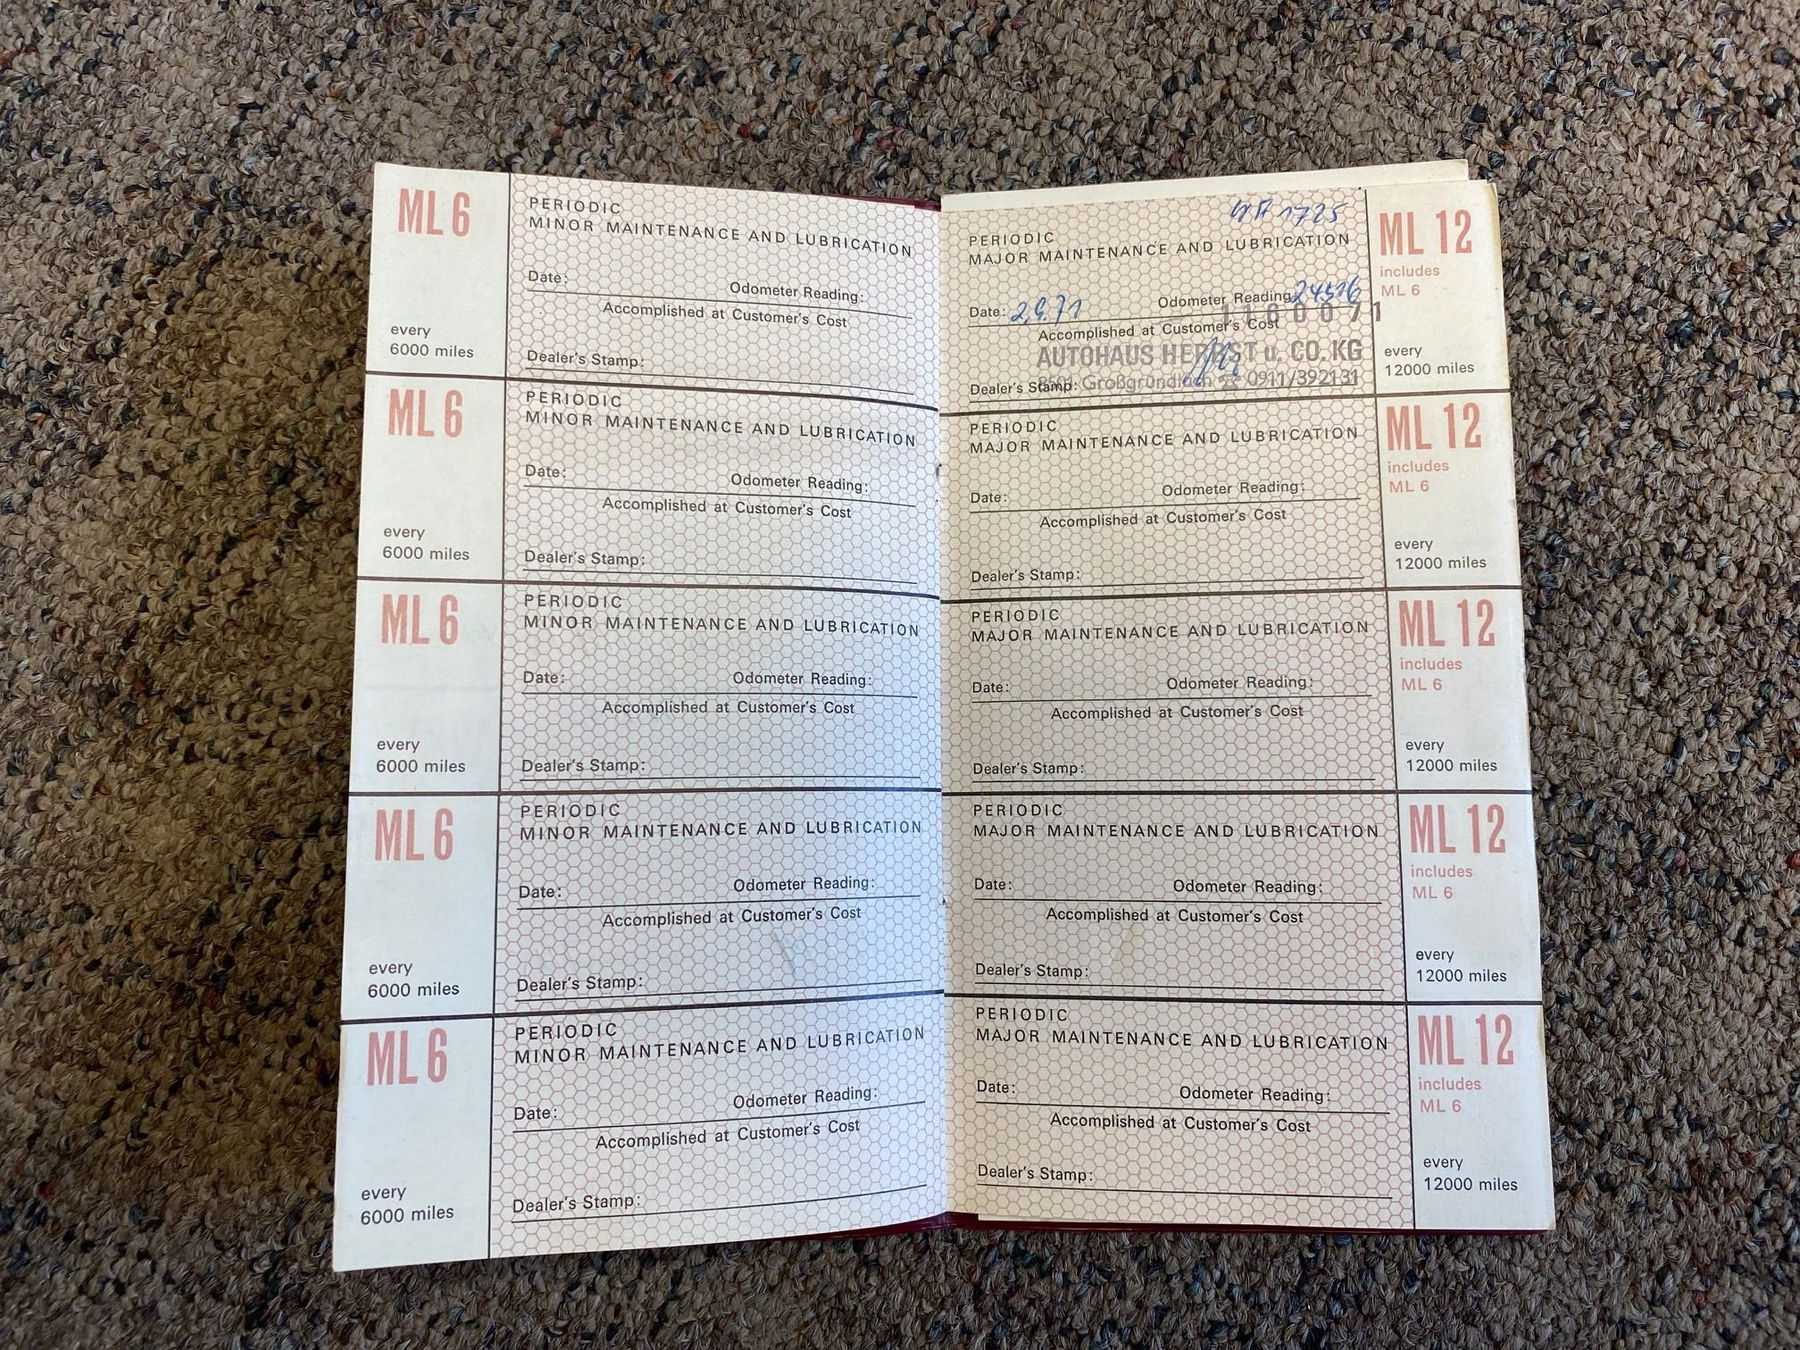 ML 6
PERIODIC
MINOR MAINTENANCE AND LUBRICATION
Date: Odometer Reading:
Accomplished at Customer's Cost
every
6000 miles
Dealer's Stamp:
ML 6
PERIODIC
MINOR MAINTENANCE AND LUBRICATION
Date: Odometer Reading:
Accomplished at Customer's Cost
every
6000 miles
Dealer's Stamp:
ML 6
PERIODIC
MINOR MAINTENANCE AND LUBRICATION
Date: Odometer Reading:
Accomplished at Customer's Cost
every
6000 miles
Dealer's Stamp:
ML 6
PERIODIC
MINOR MAINTENANCE AND LUBRICATION
Date: Odometer Reading:
Accomplished at Customer's Cost
every
6000 miles
Dealer's Stamp:
ML 6
PERIODIC
MINOR MAINTENANCE AND LUBRICATION
Date: Odometer Reading:
Accomplished at Customer's Cost
every
6000 miles
Dealer's Stamp:
1725
PERIODIC
MAJOR MAINTENANCE AND LUBRICATION
ML 12
includes
ML 6
Date: 2.9.71 Odometer Reading: 24516
1160071
Accomplished at Customer's Cost
AUTOHAUS HERBST u. CO. KG
Dealer's Stamp: 8501 Großgründlach 0911/392131
every
12000 miles
PERIODIC
MAJOR MAINTENANCE AND LUBRICATION
ML 12
includes
ML 6
Date: Odometer Reading:
Accomplished at Customer's Cost
every
12000 miles
Dealer's Stamp:
PERIODIC
MAJOR MAINTENANCE AND LUBRICATION
ML 12
includes
ML 6
Date: Odometer Reading:
Accomplished at Customer's Cost
every
12000 miles
Dealer's Stamp:
PERIODIC
MAJOR MAINTENANCE AND LUBRICATION
ML 12
includes
ML 6
Date: Odometer Reading:
Accomplished at Customer's Cost
every
12000 miles
Dealer's Stamp:
PERIODIC
MAJOR MAINTENANCE AND LUBRICATION
ML 12
includes
ML 6
Date: Odometer Reading:
Accomplished at Customer's Cost
every
12000 miles
Dealer's Stamp: